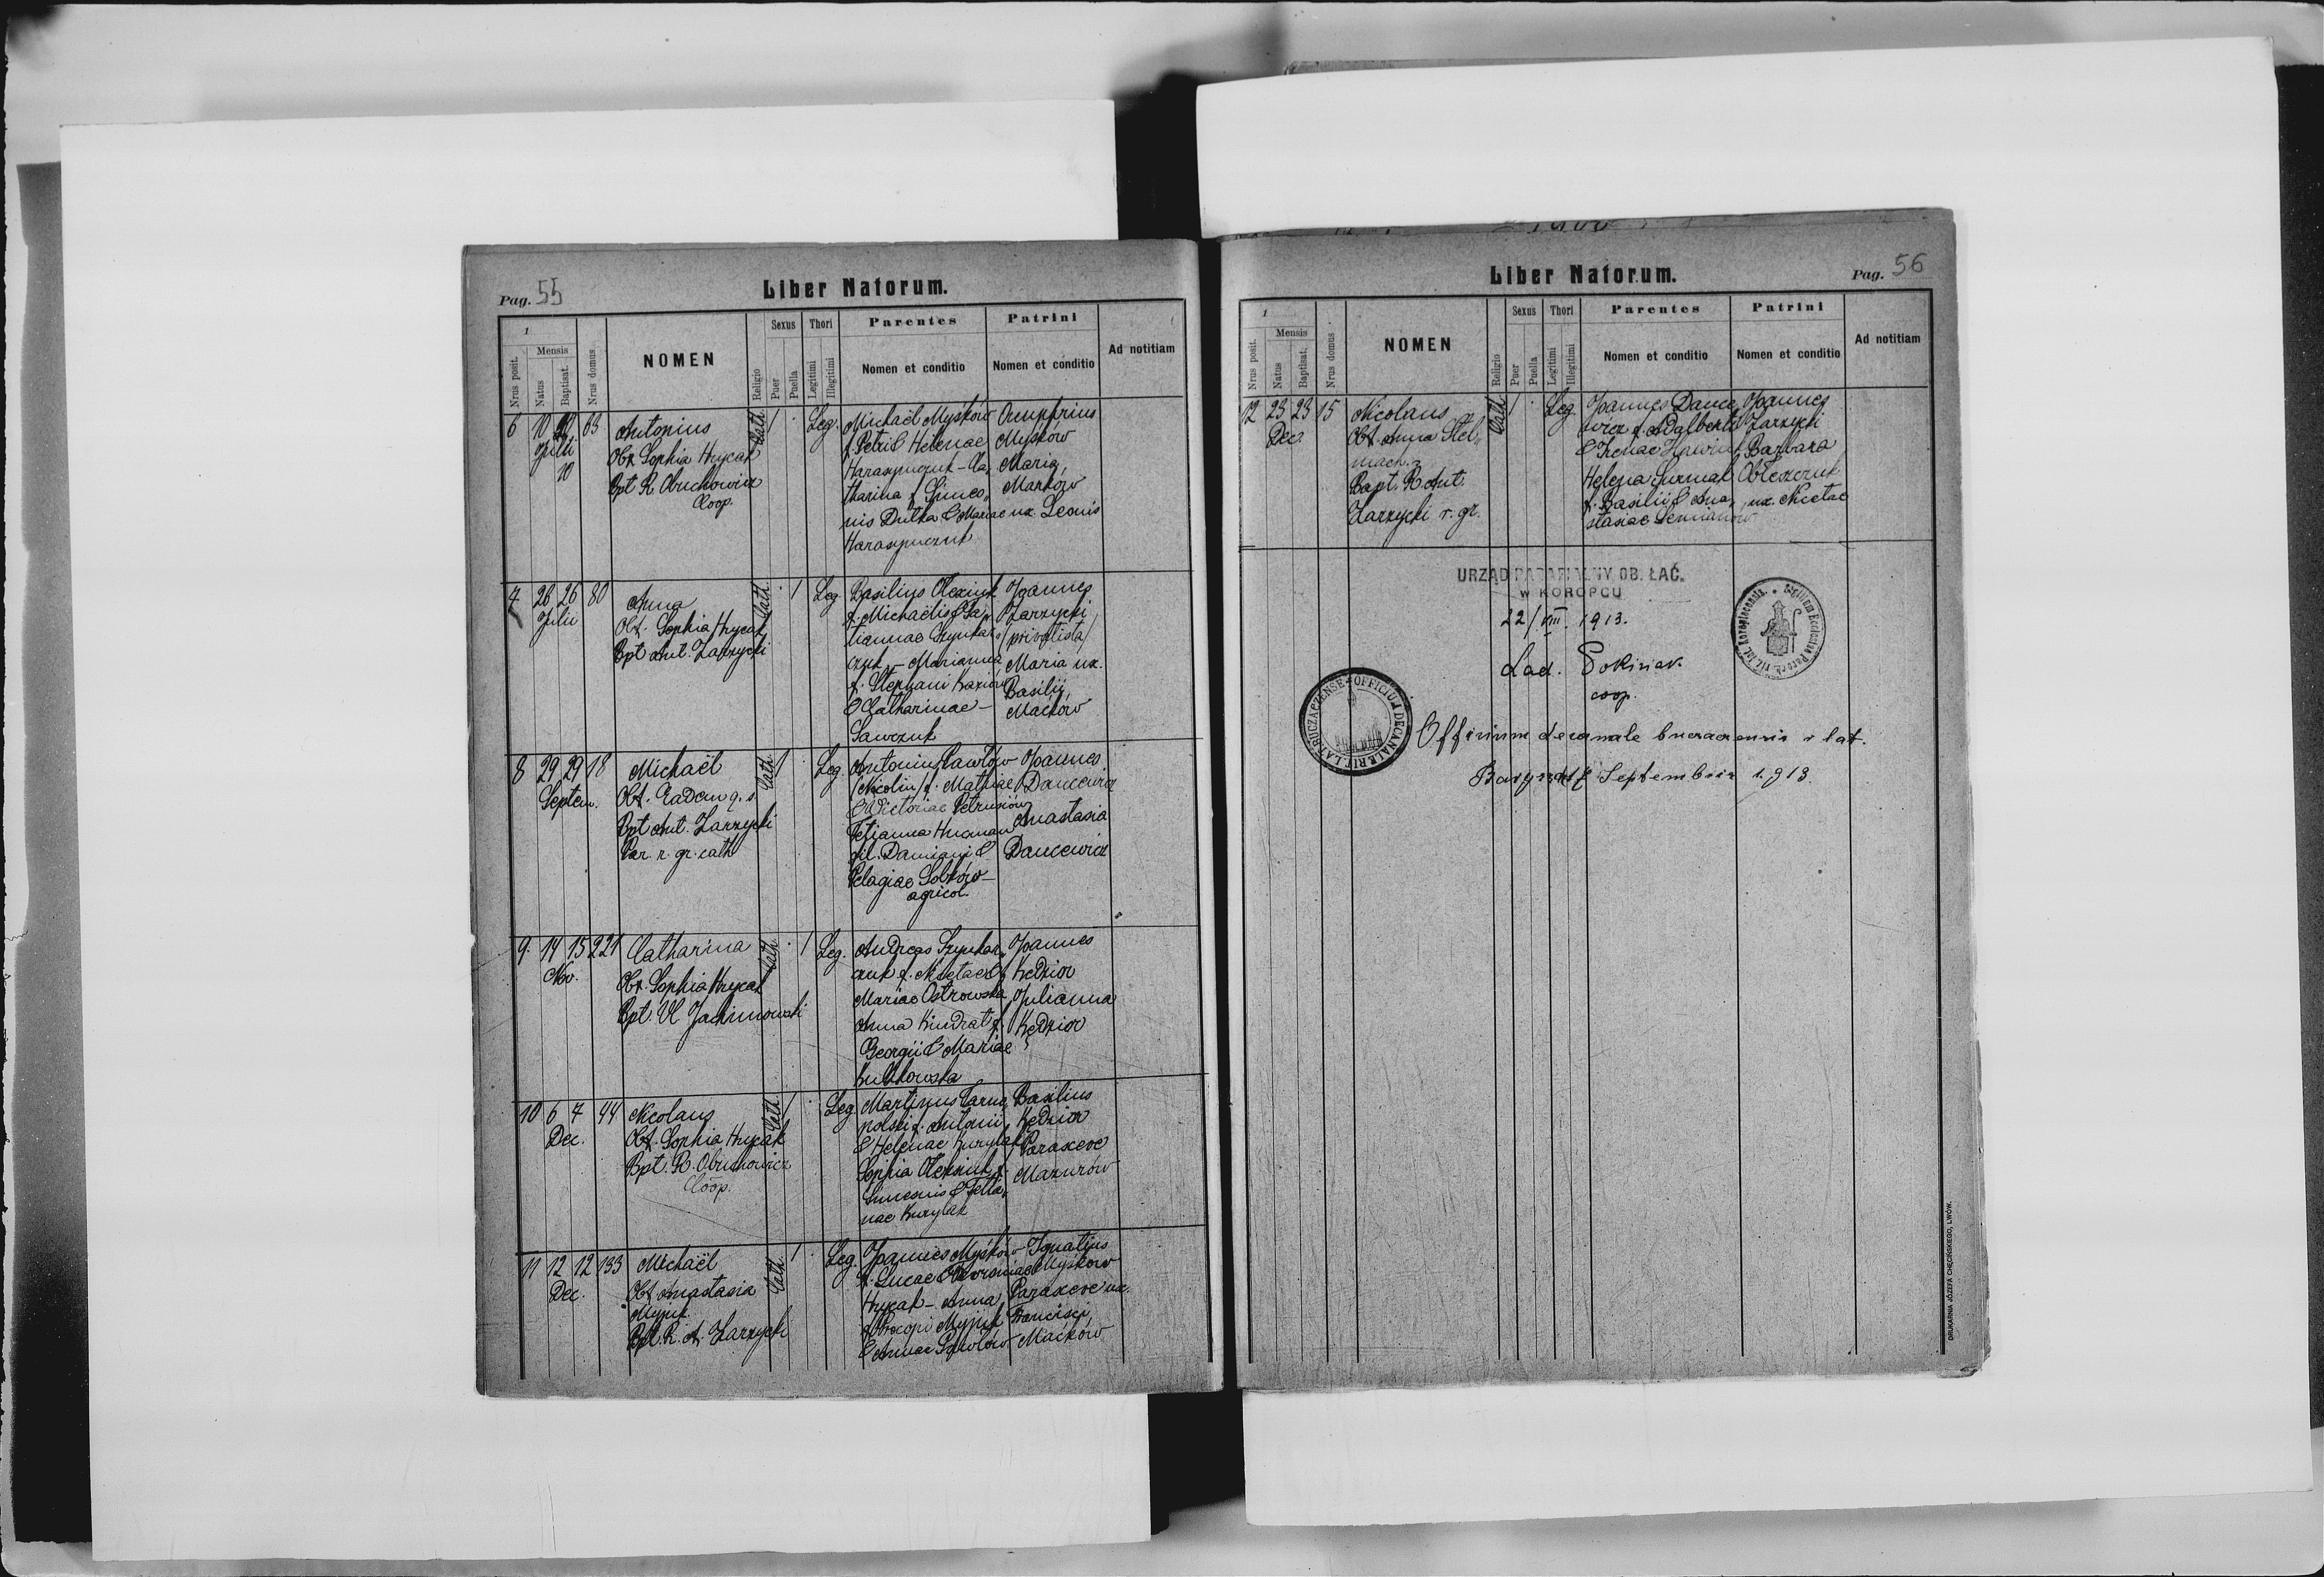 Pag. 55
Liber Natorum.
1
Nrus posit.
Mensis
Natus
Baptisat.
Nrus domus
NOMEN
Religio
Sexus
Puer
Puella
Thori
Legitimi
Illegitimi
Parentes
Nomen et conditio
Patrini
Nomen et conditio
Ad notitiam
6 10 10 83
Julii
10
Antonius
Obst. Sophia Hrycak
Bpt R. Obuchowicz
Coop.
Cath. 1 Leg.
Michaël Myśków
f. Petri & Helenae
Harasymczuk - Ca,,
tharina f. Simeo,,
nis Dutka & Mariae
Harasymczuk
Onuphrius
Myśków
Maria,
Maćków
ux. Leonis
7 26 26 80
Julii
Anna
Obst. Sophia Hrycak
Bpt Ant. Zarzycki
Cath. 1 Leg.
Basilius Olexiuk
f. Michaëlis & Ta,,
tiannae Szynkar,,
czuk - Marianna
f. Stephani
& Catharinae -
Sawczuk
Joannes
Zarzycki
/privatista/
Maria ux.
Basilii
Maćków
8 29 29 18
Septem.
Michaël
Obst. Eadem q. s.
Bpt Ant. Zarzycki
Par. r. gr. cath
Cath. 1 Leg.
Antonius Pawłów
/Nicolin/ f. Mathiae
& Victoriae Petrusiów
Tetianna Hucman
fil. Damiani &
Pelagiae Sobków -
agricol.
Joannes
Dancewicz
Anastasia
Dancewicz
9. 14 15 221
Nov.
Catharina
Obst. Sophia Hrycak
Bpt. Vl Jachimowski
Cath. 1 Leg.
Andreas Szynkar,,
czuk f. Nicetae &
Mariae Ostrowska
Anna Kindrat f.
Georgii & Mariae
Kulikowska
Joannes
Kędzior
Julianna
Kędzior
10 6 7 44
Dec.
Nicolaus
Obst. Sophia Hrycak
Bpt. R. Obuchowicz
Coop.
Cath. 1 Leg.
Martinus Tarno,,
polski f. Antonii
& Helenae Kurylak
Sophia Olexiuk f.
Simeonis & Tetia,,
nae Kurylak
Basilius
Kędzior
Parasceve
Mazurów
11 12 12 133
Dec.
Michaël
Obst Anastasia
Myjuk
Bpt. R. A. Zarzycki
Cath. 1 Leg.
Joannes Myśków
f. Lucae &
Hrycak - Anna
f. Procopi Myjuk
& Annae Pawłów
Ignatius
Myśków
Parasceve ux.
Francisci
Maćków
Pag. 56
Liber Natorum.
1
Nrus posit.
Mensis
Natus
Baptisat.
Nrus domus
NOMEN
Religio
Sexus
Puer
Puella
Thori
Legitimi
Illegitimi
Parentes
Nomen et conditio
Patrini
Nomen et conditio
Ad notitiam
12 23 23 15
Dec.
Nicolaus
Obst. Anna Stel,,
mach.
Bapt. R Ant.
Zarzycki r. gr.
Cath 1 Leg.
Joannes Dance,,
wicz f. Adalberti
& Irenae
Helena Surmak
f. Basilii & Ana,,
stasiae Demianów
Joannes
Zarzycki
Barbara
Obleszczuk
ux. Nicetae
URZĄD PARAFIALNY OB. ŁAĆ.
W KOROPCU
22/VIII. 1913.
Lad. Dokiniak
coop.
OFFICIUM DECANALE RIT. LAT. BUCZACZENSE
Officium decanale buczaczensis r. lat.
Septembris 1913.
DRUKARNIA JÓZEFA CHĘCIŃSKIEGO, LWÓW.